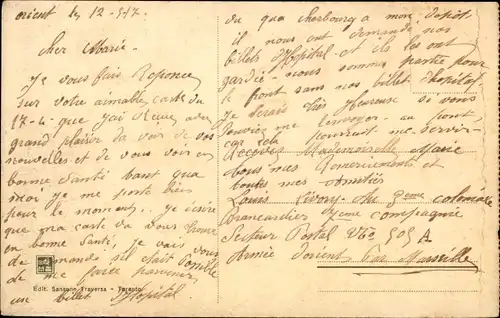 orient le 12-5-17.
Cher Marie
Je vous fais Reponce
sur votre aimable carte du
17-4- que J'ai Reçue avec
grand plaisir da voir de vos
nouvelles et de vous voir en
bonne Santé tant que
moi je me porte bien
pour le moment.. je désire
que ma carte va vous trouve
en bonne Santé, je vais vous
demande sil était Posible
de me faire parvenir
une billet d'Hopital
du qua Cherbourg a mon depôt
il nous ont demandé nos
billets d'Hôpital et ils les ont
gardé - nous somme partie pour
le front sans nos billet d'hopital
Je serais très Heureuse si vous
pouviez me l'envoyer - au front
car cela pourrait me servir.
Recevez Mademoiselle Marie
tous mes Remerciements et
toutes mes Amitiés
Louis 3eme coloniale
Brancardier eme compagnie
Secteur Postal No 505 A
Armée d'orient Par Marseille
Edit. Sansone Traversa - Taranto